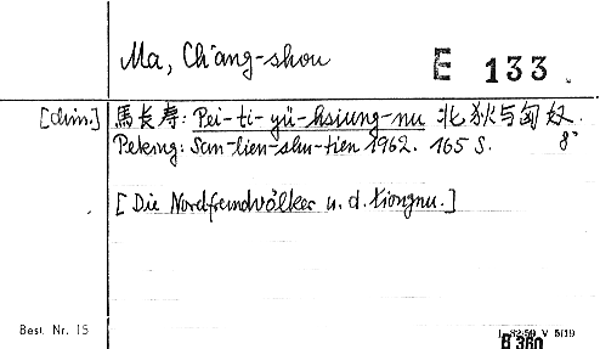 Ma, Ch'ang-shou
E 133.
[chin.] 馬長寿: Pei-ti-yü-hsiung-nu 北狄与匈奴.
Peking: San-lien-shu-tien 1962. 165 S. 8°
[Die Nordfremdvölker u. d. Xiongnu.]
Best. Nr. 15
V 5119
B 360